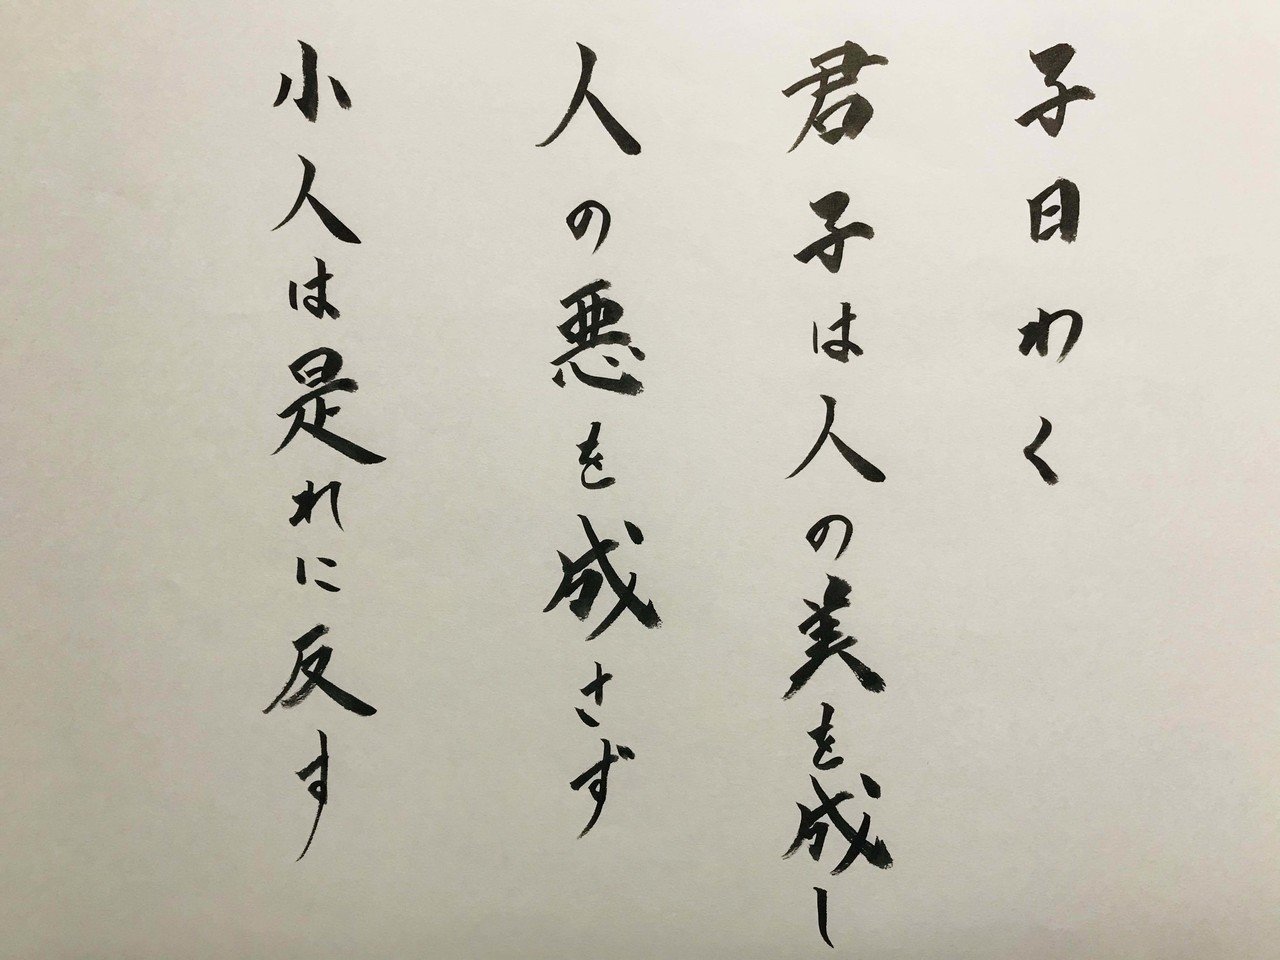 子曰わく
君子は人の美を成し
人の悪を成さず
小人は是れに反す